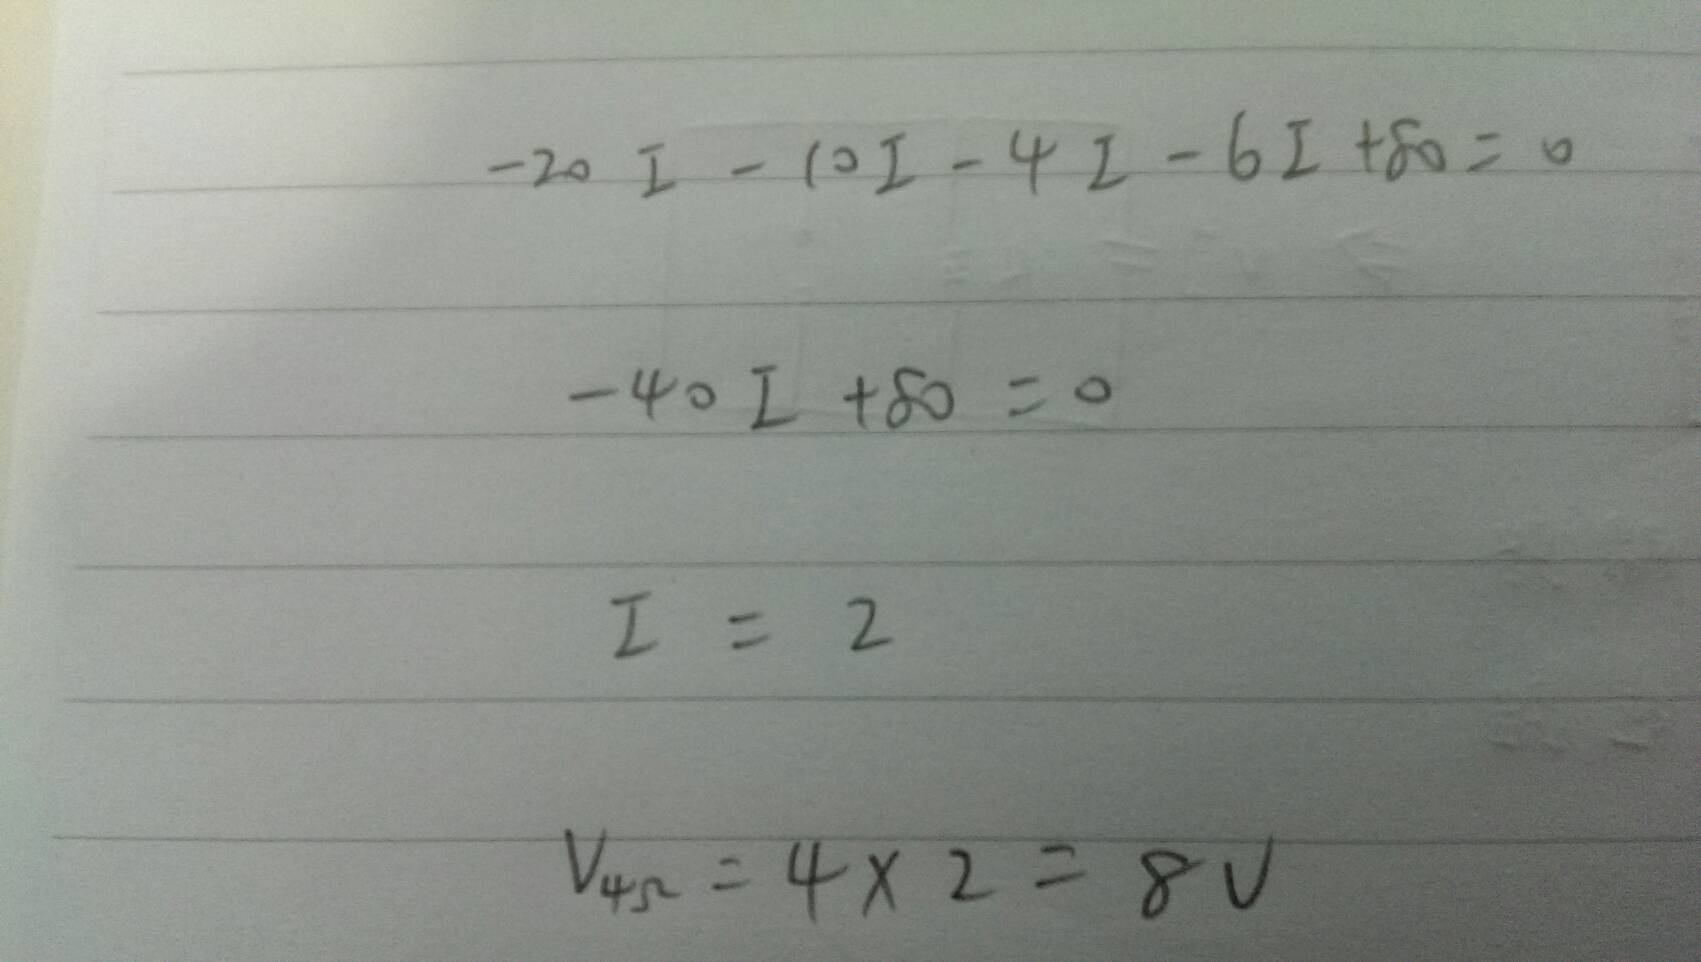 -20 I - 10 I - 4 I - 6 I + 80 = 0
-40 I + 80 = 0
I = 2
V4Ω = 4 × 2 = 8 V